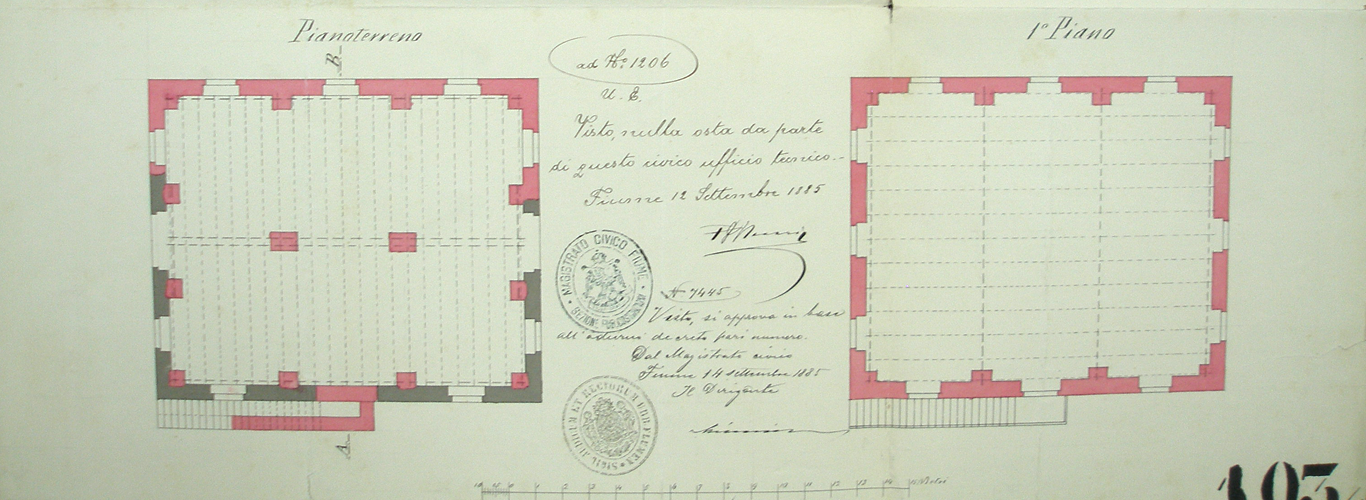 Pianoterreno
1º Piano
B
ad Nº 1206
U. E.
Visto, nulla osta da parte
di questo civico ufficio tecnico.-
Fiume 12 Settembre 1885
MAGISTRATO CIVICO FIUME
N 7445
Visto, si approva in base
all' odierno decreto pari numero.
Dal Magistrato civico
Fiume 14 settembre 1885
Il Dirigente
A
10 5 0 1 2 3 4 5 6 7 8 9 10 11 12 13 14 15 Metri
103